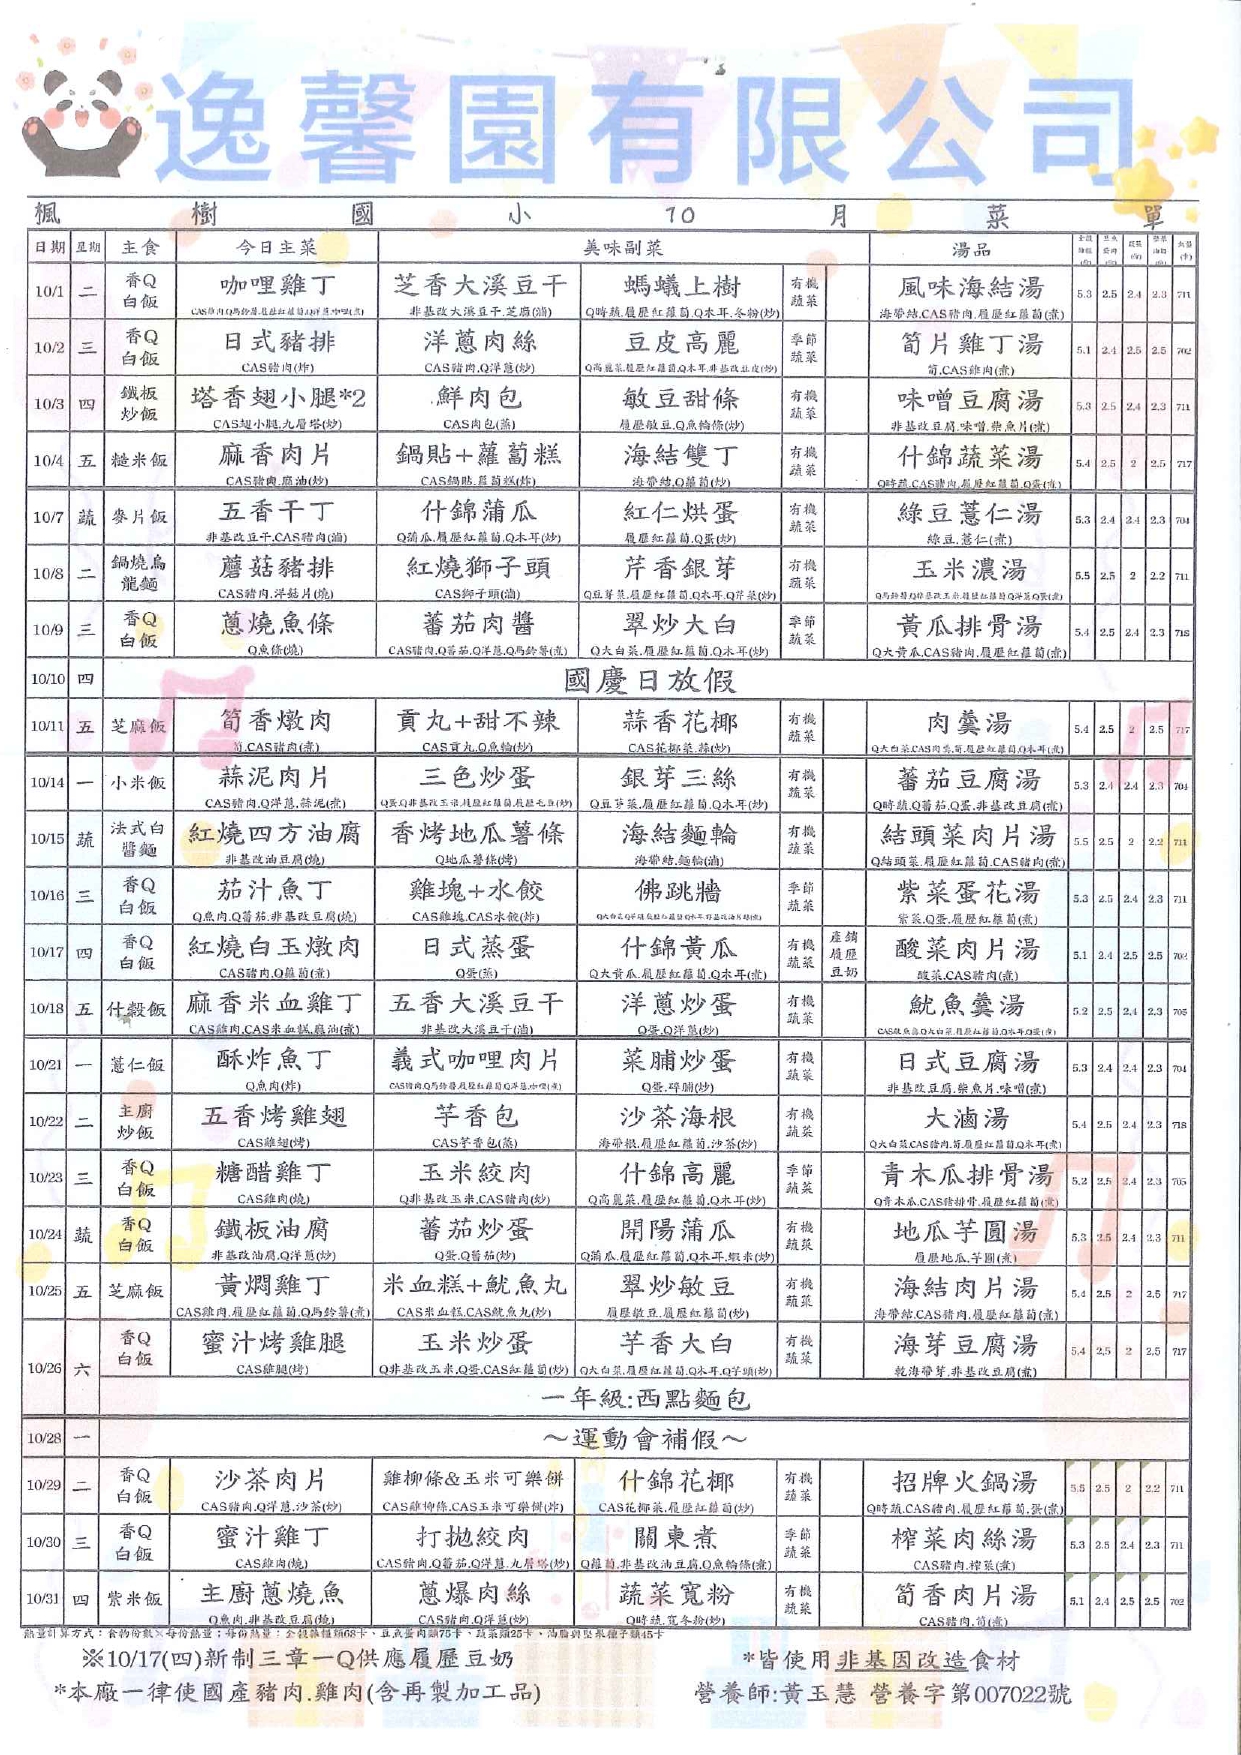 逸馨園有限公司
楓樹國小10月菜單
日期 星期 主食 今日主菜 美味副菜 湯品
10/1 二 香Q白飯 咖哩雞丁 芝香大溪豆干 螞蟻上樹 有機蔬菜 風味海結湯 5.3 2.5 2.4 2.3 711
非基改大溪豆干.芝麻(滷) Q時蔬.履歷紅蘿蔔.Q木耳.冬粉(炒) 海帶結.CAS豬肉.履歷紅蘿蔔(煮)
10/2 三 香Q白飯 日式豬排 洋蔥肉絲 豆皮高麗 季節蔬菜 筍片雞丁湯 5.1 2.4 2.5 2.5 702
CAS豬肉(炸) CAS豬肉.Q洋蔥(炒) Q高麗菜.履歷紅蘿蔔.Q木耳.非基改豆皮(炒) 筍.CAS雞肉(煮)
10/3 四 鐵板炒飯 塔香翅小腿*2 鮮肉包 敏豆甜條 有機蔬菜 味噌豆腐湯 5.3 2.5 2.4 2.3 711
CAS翅小腿.九層塔(炒) CAS肉包(蒸) 履歷敏豆.Q魚輪條(炒) 非基改豆腐.味噌.柴魚片(煮)
10/4 五 糙米飯 麻香肉片 鍋貼+蘿蔔糕 海結雙丁 有機蔬菜 什錦蔬菜湯 5.4 2.5 2 2.5 717
CAS豬肉.麻油(炒) CAS鍋貼.蘿蔔糕(炸) 海帶結.Q蘿蔔(炒) Q時蔬.CAS豬肉.履歷紅蘿蔔.Q蛋(煮)
10/7 蔬 麥片飯 五香干丁 什錦蒲瓜 紅仁烘蛋 有機蔬菜 綠豆薏仁湯 5.3 2.4 2.4 2.3 704
非基改豆干.CAS豬肉(滷) Q蒲瓜.履歷紅蘿蔔.Q木耳(炒) 履歷紅蘿蔔.Q蛋(炒) 綠豆.薏仁(煮)
10/8 二 鍋燒烏龍麵 蘑菇豬排 紅燒獅子頭 芹香銀芽 有機蔬菜 玉米濃湯 5.5 2.5 2 2.2 711
CAS豬肉.洋菇片(燒) CAS獅子頭(滷) Q豆芽菜.履歷紅蘿蔔.Q木耳.Q芹菜(炒) Q馬鈴薯.Q非基改玉米.履歷紅蘿蔔.Q洋蔥.Q蛋(煮)
10/9 三 香Q白飯 蔥燒魚條 蕃茄肉醬 翠炒大白 季節蔬菜 黃瓜排骨湯 5.4 2.5 2.4 2.3 718
Q魚條(燒) CAS豬肉.Q蕃茄.Q洋蔥.Q馬鈴薯(煮) Q大白菜.履歷紅蘿蔔.Q木耳(炒) Q大黃瓜.CAS豬肉.履歷紅蘿蔔(煮)
10/10 四 國慶日放假
10/11 五 芝麻飯 筍香燉肉 貢丸+甜不辣 蒜香花椰 有機蔬菜 肉羹湯 5.4 2.5 2 2.5 717
筍.CAS豬肉(煮) CAS貢丸.Q魚輪(炒) CAS花椰菜.蒜(炒) Q大白菜.CAS肉羹.筍.履歷紅蘿蔔.Q木耳(煮)
10/14 一 小米飯 蒜泥肉片 三色炒蛋 銀芽三絲 有機蔬菜 蕃茄豆腐湯 5.3 2.4 2.4 2.3 704
CAS豬肉.Q洋蔥.蒜泥(煮) Q蛋.Q非基改玉米.履歷紅蘿蔔.履歷毛豆(炒) Q豆芽菜.履歷紅蘿蔔.Q木耳(炒) Q時蔬.Q蕃茄.Q蛋.非基改豆腐(煮)
10/15 蔬 法式白醬麵 紅燒四方油腐 香烤地瓜薯條 海結麵輪 有機蔬菜 結頭菜肉片湯 5.5 2.5 2 2.2 711
非基改油豆腐(燒) Q地瓜薯條(烤) 海帶結.麵輪(滷) Q結頭菜.履歷紅蘿蔔.CAS豬肉(煮)
10/16 三 香Q白飯 茄汁魚丁 雞塊+水餃 佛跳牆 季節蔬菜 紫菜蛋花湯 5.3 2.5 2.4 2.3 711
Q魚肉.Q蕃茄.非基改豆腐(燒) CAS雞塊.CAS水餃(炸) 紫菜.Q蛋.履歷紅蘿蔔(煮)
10/17 四 香Q白飯 紅燒白玉燉肉 日式蒸蛋 什錦黃瓜 有機蔬菜 產銷履歷豆奶 酸菜肉片湯 5.1 2.4 2.5 2.5 702
CAS豬肉.Q蘿蔔(煮) Q蛋(蒸) Q大黃瓜.履歷紅蘿蔔.Q木耳(煮) 酸菜.CAS豬肉(煮)
10/18 五 什穀飯 麻香米血雞丁 五香大溪豆干 洋蔥炒蛋 有機蔬菜 魷魚羹湯 5.2 2.5 2.4 2.3 705
CAS雞肉.CAS米血糕.麻油(煮) 非基改大溪豆干(滷) Q蛋.Q洋蔥(炒) CAS魷魚羹.Q大白菜.履歷紅蘿蔔.Q木耳.Q蛋(煮)
10/21 一 薏仁飯 酥炸魚丁 義式咖哩肉片 菜脯炒蛋 有機蔬菜 日式豆腐湯 5.3 2.4 2.4 2.3 704
Q魚肉(炸) CAS豬肉.Q馬鈴薯.履歷紅蘿蔔.Q洋蔥.咖哩(煮) Q蛋.碎脯(炒) 非基改豆腐.柴魚片.味噌(煮)
10/22 二 主廚炒飯 五香烤雞翅 芋香包 沙茶海根 有機蔬菜 大滷湯 5.4 2.5 2.4 2.3 718
CAS雞翅(烤) CAS芋香包(蒸) 海帶根.履歷紅蘿蔔.沙茶(炒) Q大白菜.CAS豬肉.筍.履歷紅蘿蔔.Q木耳(煮)
10/23 三 香Q白飯 糖醋雞丁 玉米絞肉 什錦高麗 季節蔬菜 青木瓜排骨湯 5.2 2.5 2.4 2.3 705
CAS雞肉(燒) Q非基改玉米.CAS豬肉(炒) Q高麗菜.履歷紅蘿蔔.Q木耳(炒) Q青木瓜.CAS豬排骨.履歷紅蘿蔔(煮)
10/24 蔬 香Q白飯 鐵板油腐 蕃茄炒蛋 開陽蒲瓜 有機蔬菜 地瓜芋圓湯 5.3 2.5 2.4 2.3 711
非基改油腐.Q洋蔥(炒) Q蛋.Q蕃茄(炒) Q蒲瓜.履歷紅蘿蔔.Q木耳.蝦米(炒) 履歷地瓜.芋圓(煮)
10/25 五 芝麻飯 黃燜雞丁 米血糕+魷魚丸 翠炒敏豆 有機蔬菜 海結肉片湯 5.4 2.5 2 2.5 717
CAS雞肉.履歷紅蘿蔔.Q馬鈴薯(煮) CAS米血糕.CAS魷魚丸(炒) 履歷敏豆.履歷紅蘿蔔(炒) 海帶結.CAS豬肉.履歷紅蘿蔔(煮)
10/26 六 香Q白飯 蜜汁烤雞腿 玉米炒蛋 芋香大白 有機蔬菜 海芽豆腐湯 5.4 2.5 2 2.5 717
CAS雞腿(烤) Q非基改玉米.Q蛋.CAS紅蘿蔔(炒) Q大白菜.履歷紅蘿蔔.Q木耳.Q芋頭(炒) 乾海帶芽.非基改豆腐(煮)
一年級:西點麵包
10/28 一 ～運動會補假～
10/29 二 香Q白飯 沙茶肉片 雞柳條&玉米可樂餅 什錦花椰 有機蔬菜 招牌火鍋湯 5.5 2.5 2 2.2 711
CAS豬肉.Q洋蔥.沙茶(炒) CAS雞柳條.CAS玉米可樂餅(炸) CAS花椰菜.履歷紅蘿蔔(炒) Q時蔬.CAS豬肉.履歷紅蘿蔔.蛋(煮)
10/30 三 香Q白飯 蜜汁雞丁 打拋絞肉 關東煮 季節蔬菜 榨菜肉絲湯 5.3 2.5 2.4 2.3 711
CAS雞肉(燒) CAS豬肉.Q蕃茄.Q洋蔥.九層塔(炒) Q蘿蔔.非基改油豆腐.Q魚輪條(煮) CAS豬肉.榨菜(煮)
10/31 四 紫米飯 主廚蔥燒魚 蔥爆肉絲 蔬菜寬粉 有機蔬菜 筍香肉片湯 5.1 2.4 2.5 2.5 702
Q魚肉.非基改豆腐(燒) CAS豬肉.Q洋蔥(炒) Q時蔬.寬冬粉(炒) CAS豬肉.筍(煮)
熱量計算方式：食物份數×每份熱量；每份熱量：全穀雜糧類68卡、豆魚蛋肉類75卡、蔬菜類25卡、油脂與堅果種子類45卡
※10/17(四)新制三章一Q供應履歷豆奶 *皆使用非基因改造食材
*本廠一律使國產豬肉.雞肉(含再製加工品) 營養師:黃玉慧 營養字第007022號